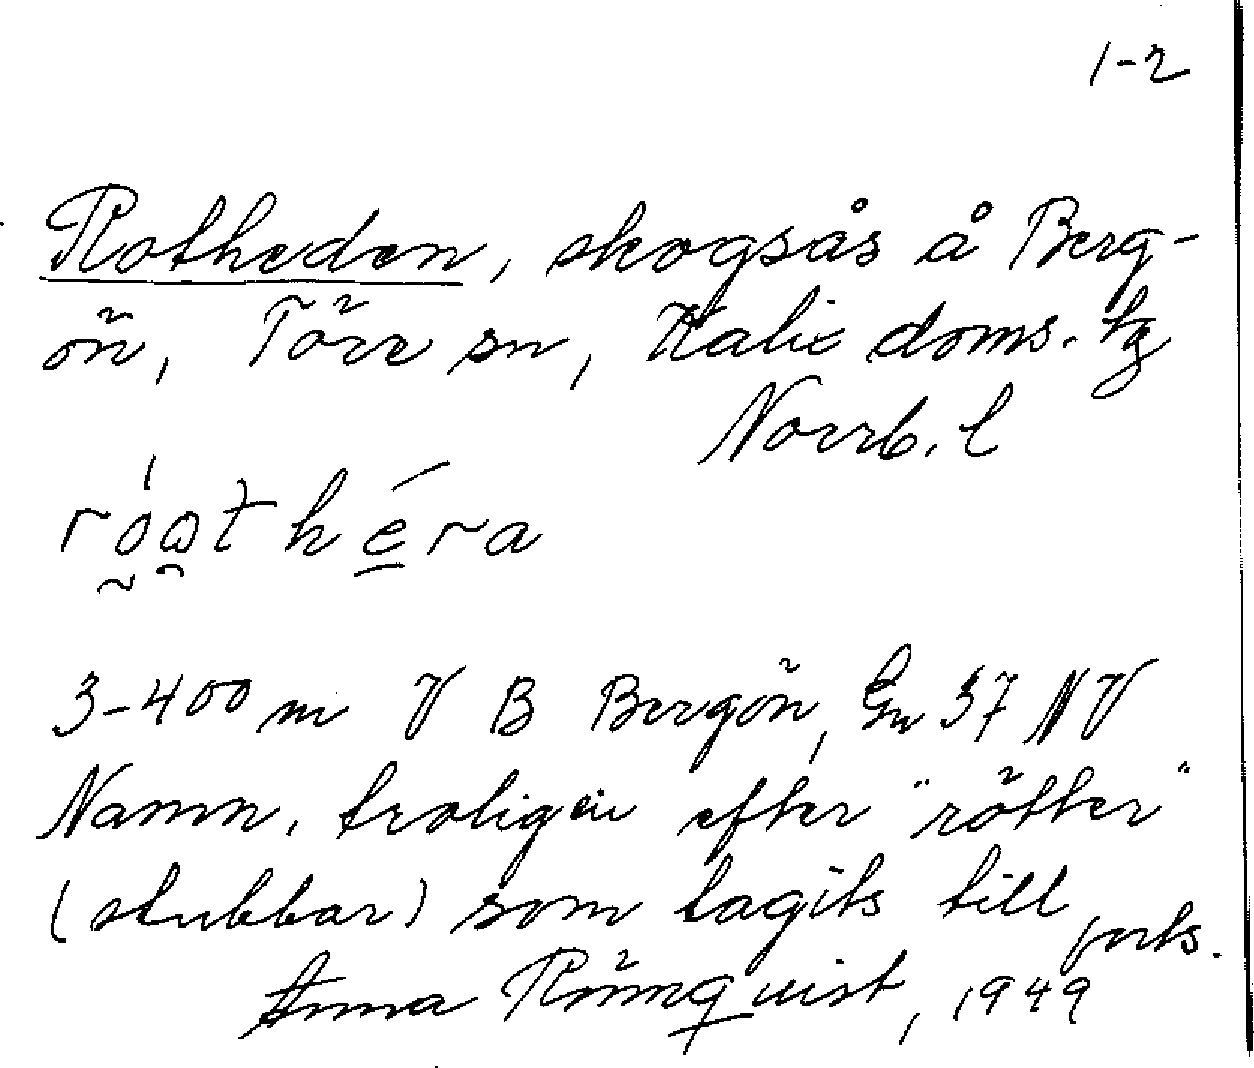 1-2
Rotheden, skogsås å Berg-
ön, Töre sn, Kalix doms. tg
Norrb. l
róa̯t héra
3-400 m V B Bergön, Gw 37 NV
Namn. troligen efter "rötter"
(stubbar) som tagits till
forts.
Anna Rönnquist, 1949